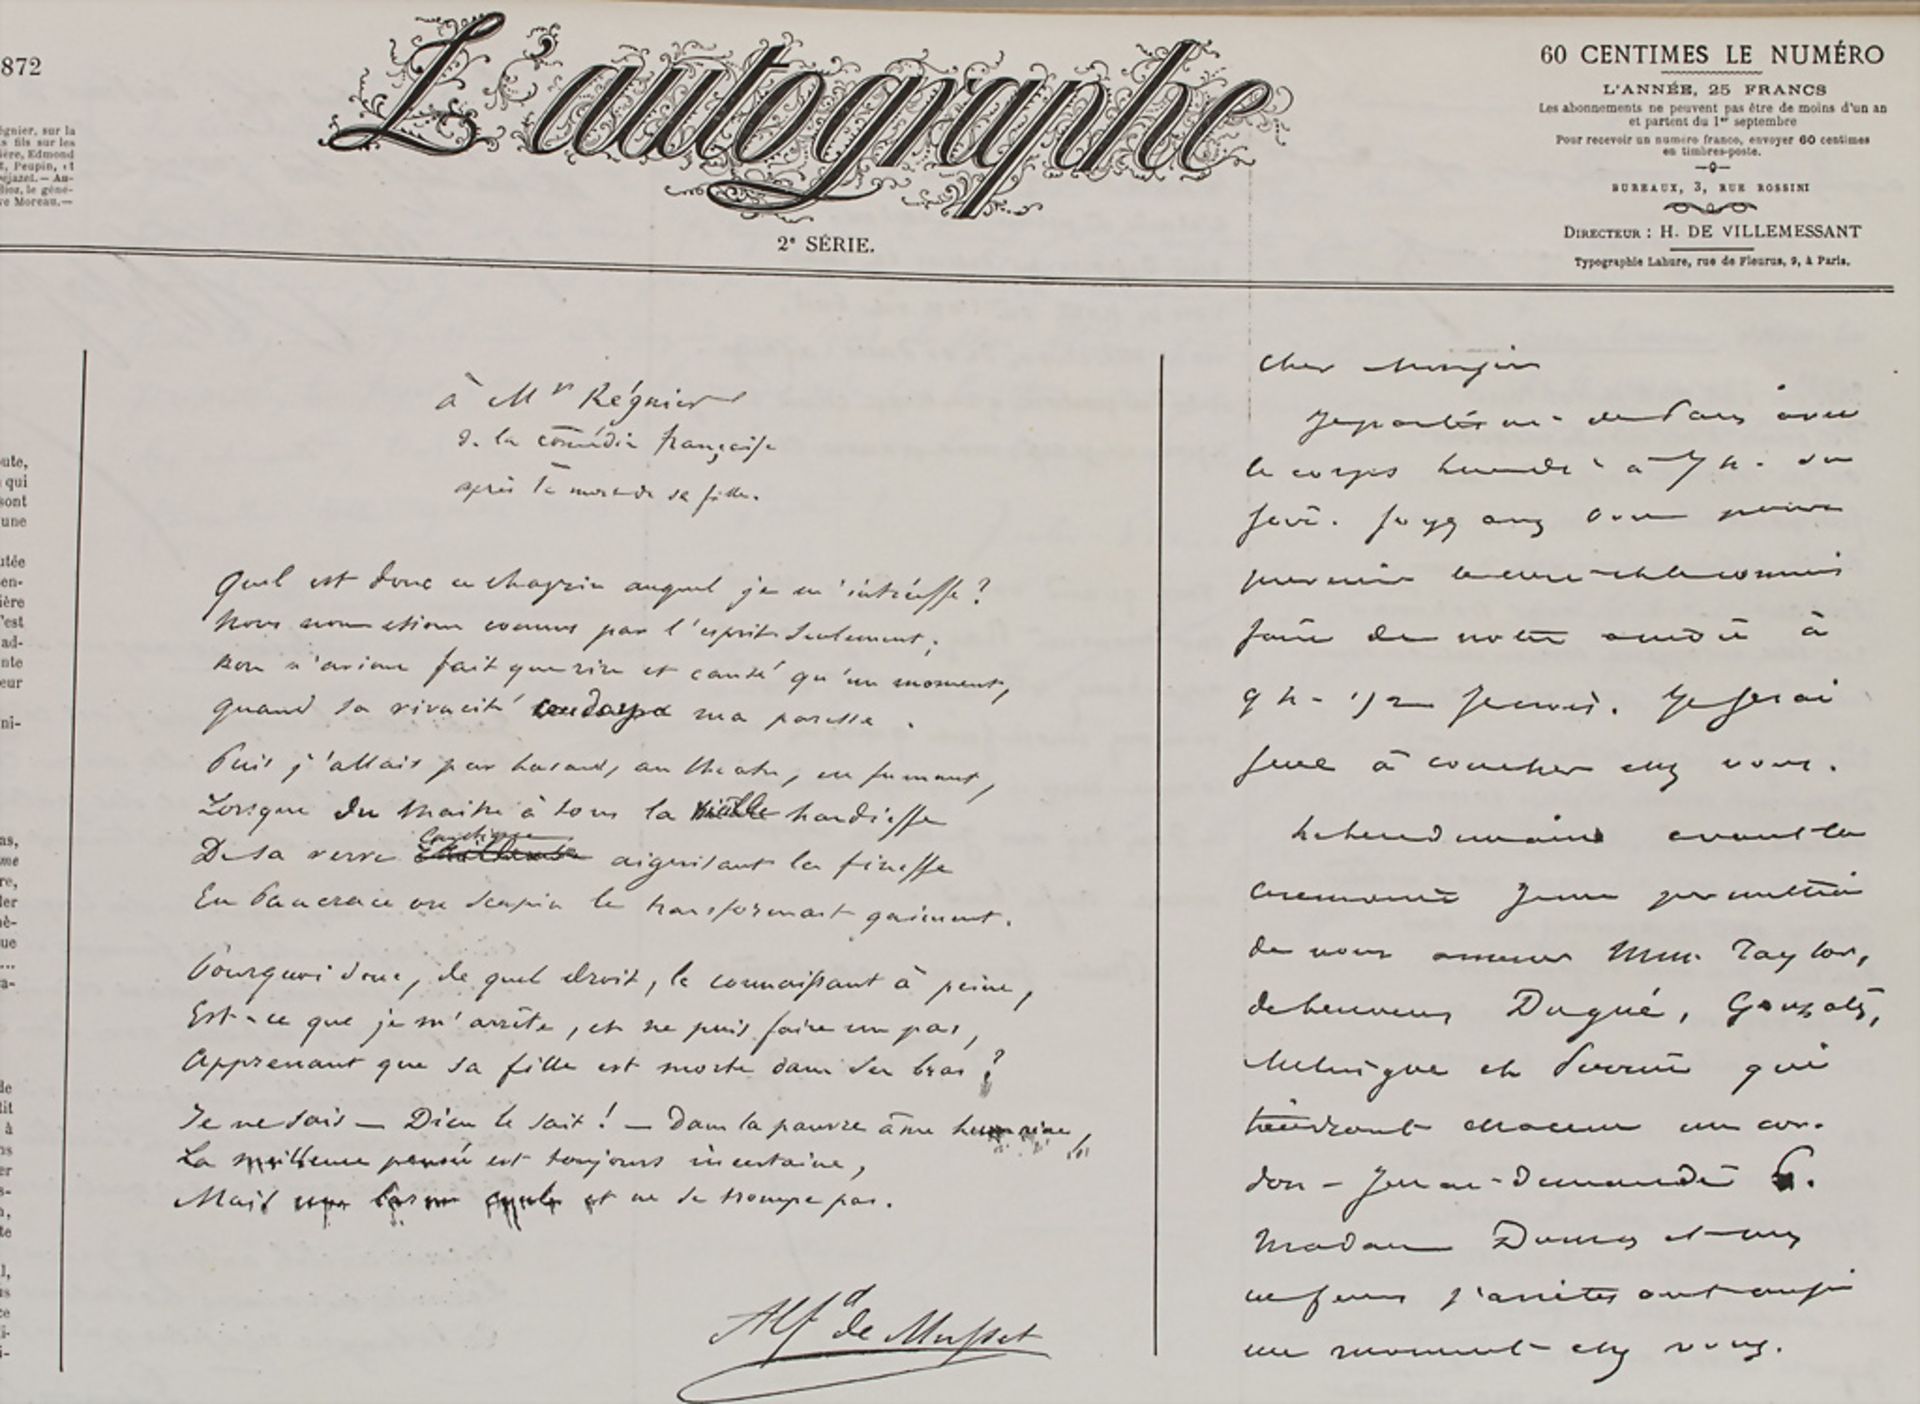 872
L'autographe
2e SÉRIE.
60 CENTIMES LE NUMÉRO
L'ANNÉE, 25 FRANCS
Les abonnements ne peuvent pas être de moins d'un an
et partent du 1er septembre
Pour recevoir un numéro franco, envoyer 60 centimes
en timbres-poste.
BUREAUX, 3, RUE ROSSINI
DIRECTEUR : H. DE VILLEMESSANT
Typographie Lahure, rue de Fleurus, 9, à Paris.
égnier, sur la
s fils sur les
ière, Edmond
t, Peupin, et
éjazet. — Au-
lioz, le géné-
ve Moreau. —
oute,
qui
sont
une
utée
en-
ière
'est
ad-
nte
eur
ni-
as,
me
re,
ler
è-
que
...
a-
de
tit
à
ns
er
s-
n,
te
l,
is
ce
i-
i-
à Mr Régnier
de la comédie française
après la mort de sa fille.
Quel est donc ce chagrin auquel je m'intéresse ?
Nous nous étions connus par l'esprit seulement ;
Nous n'avions fait que rire et causé qu'un moment,
quand sa vivacité coudoya ma paresse.
Puis j'allais par hasard, au théâtre, en fumant,
Lorsque du maître à tous la vieille hardiesse
De sa verve caustique aiguisant la finesse
En Pancrace ou Scapin le transformait gaiment.
Pourquoi donc, de quel droit, le connaissant à peine,
Est-ce que je m'arrête, et ne puis faire un pas,
Apprenant que sa fille est morte dans ses bras ?
Je ne sais — Dieu le sait ! — Dans la pauvre âme humaine,
La meilleure pensée est toujours incertaine,
Mais une larme coule et ne se trompe pas.
Alfd de Musset
Cher Monsieur
Je partirai de Paris avec
le corps lundi à 7 h. du
soir. Soyez assez bon pour
prévenir
faire de notre arrivée à
9 h - 1/2 Je serai
seul à coucher chez vous.
Le lendemain avant la
cérémonie permettrai
de vous amener Mrs. Taylor,
Dugué, Gonzalès,
Mélingue et qui
tiendront chacun un cor-
don -
Madame Dumas et mes
enfants s'arrêteront aussi
un moment chez vous.